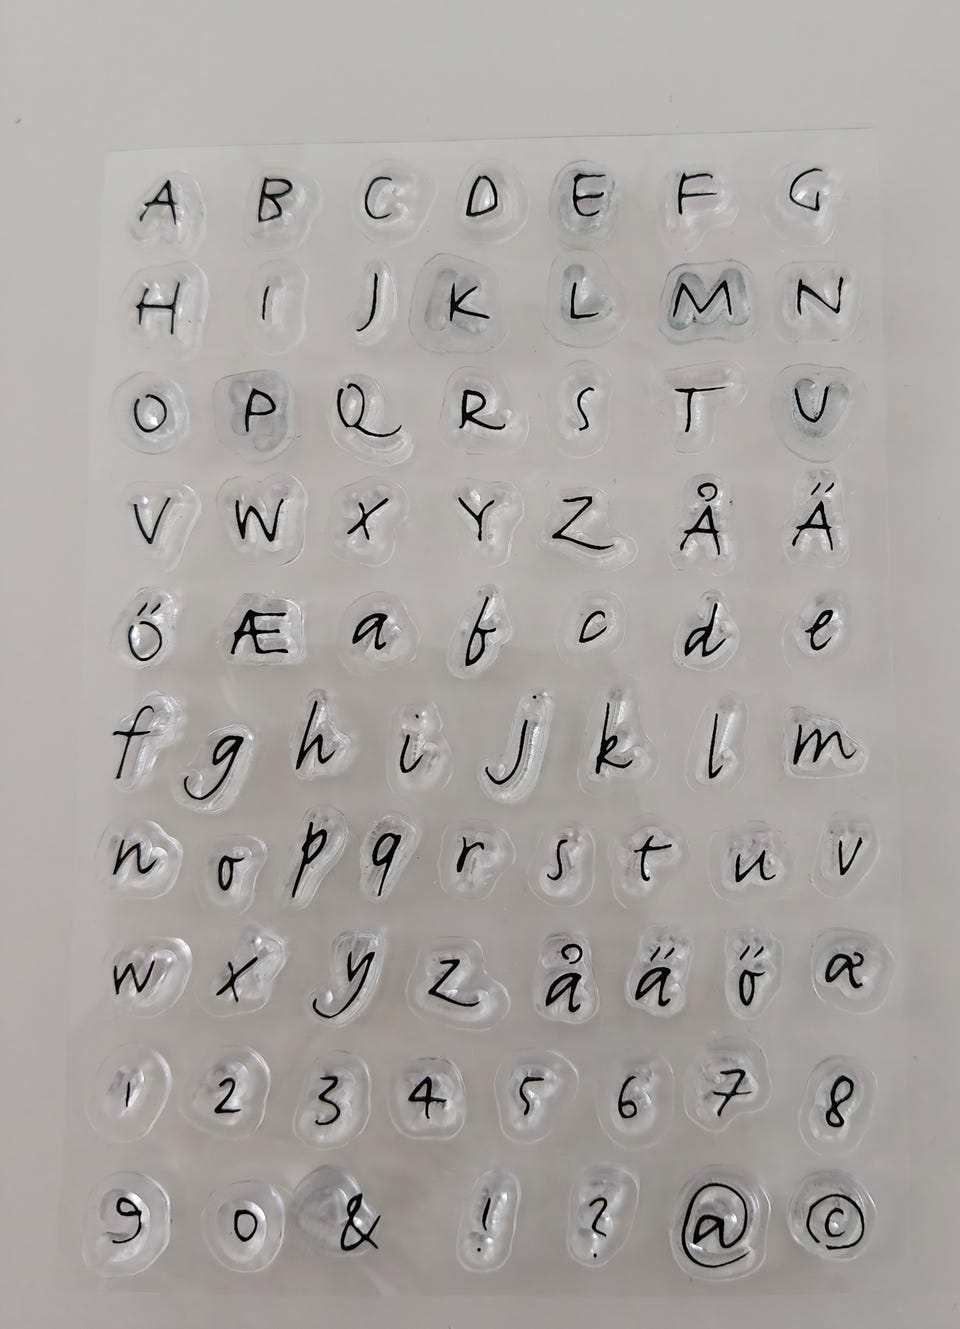 A B C D E F G
H I J K L M N
O P Q R S T U
V W X Y Z Å Ä
Ö Æ a b c d e
f g h i j k l m
n o p q r s t u v
w x y z å ä ö æ
1 2 3 4 5 6 7 8
9 0 & ! ? @ ©